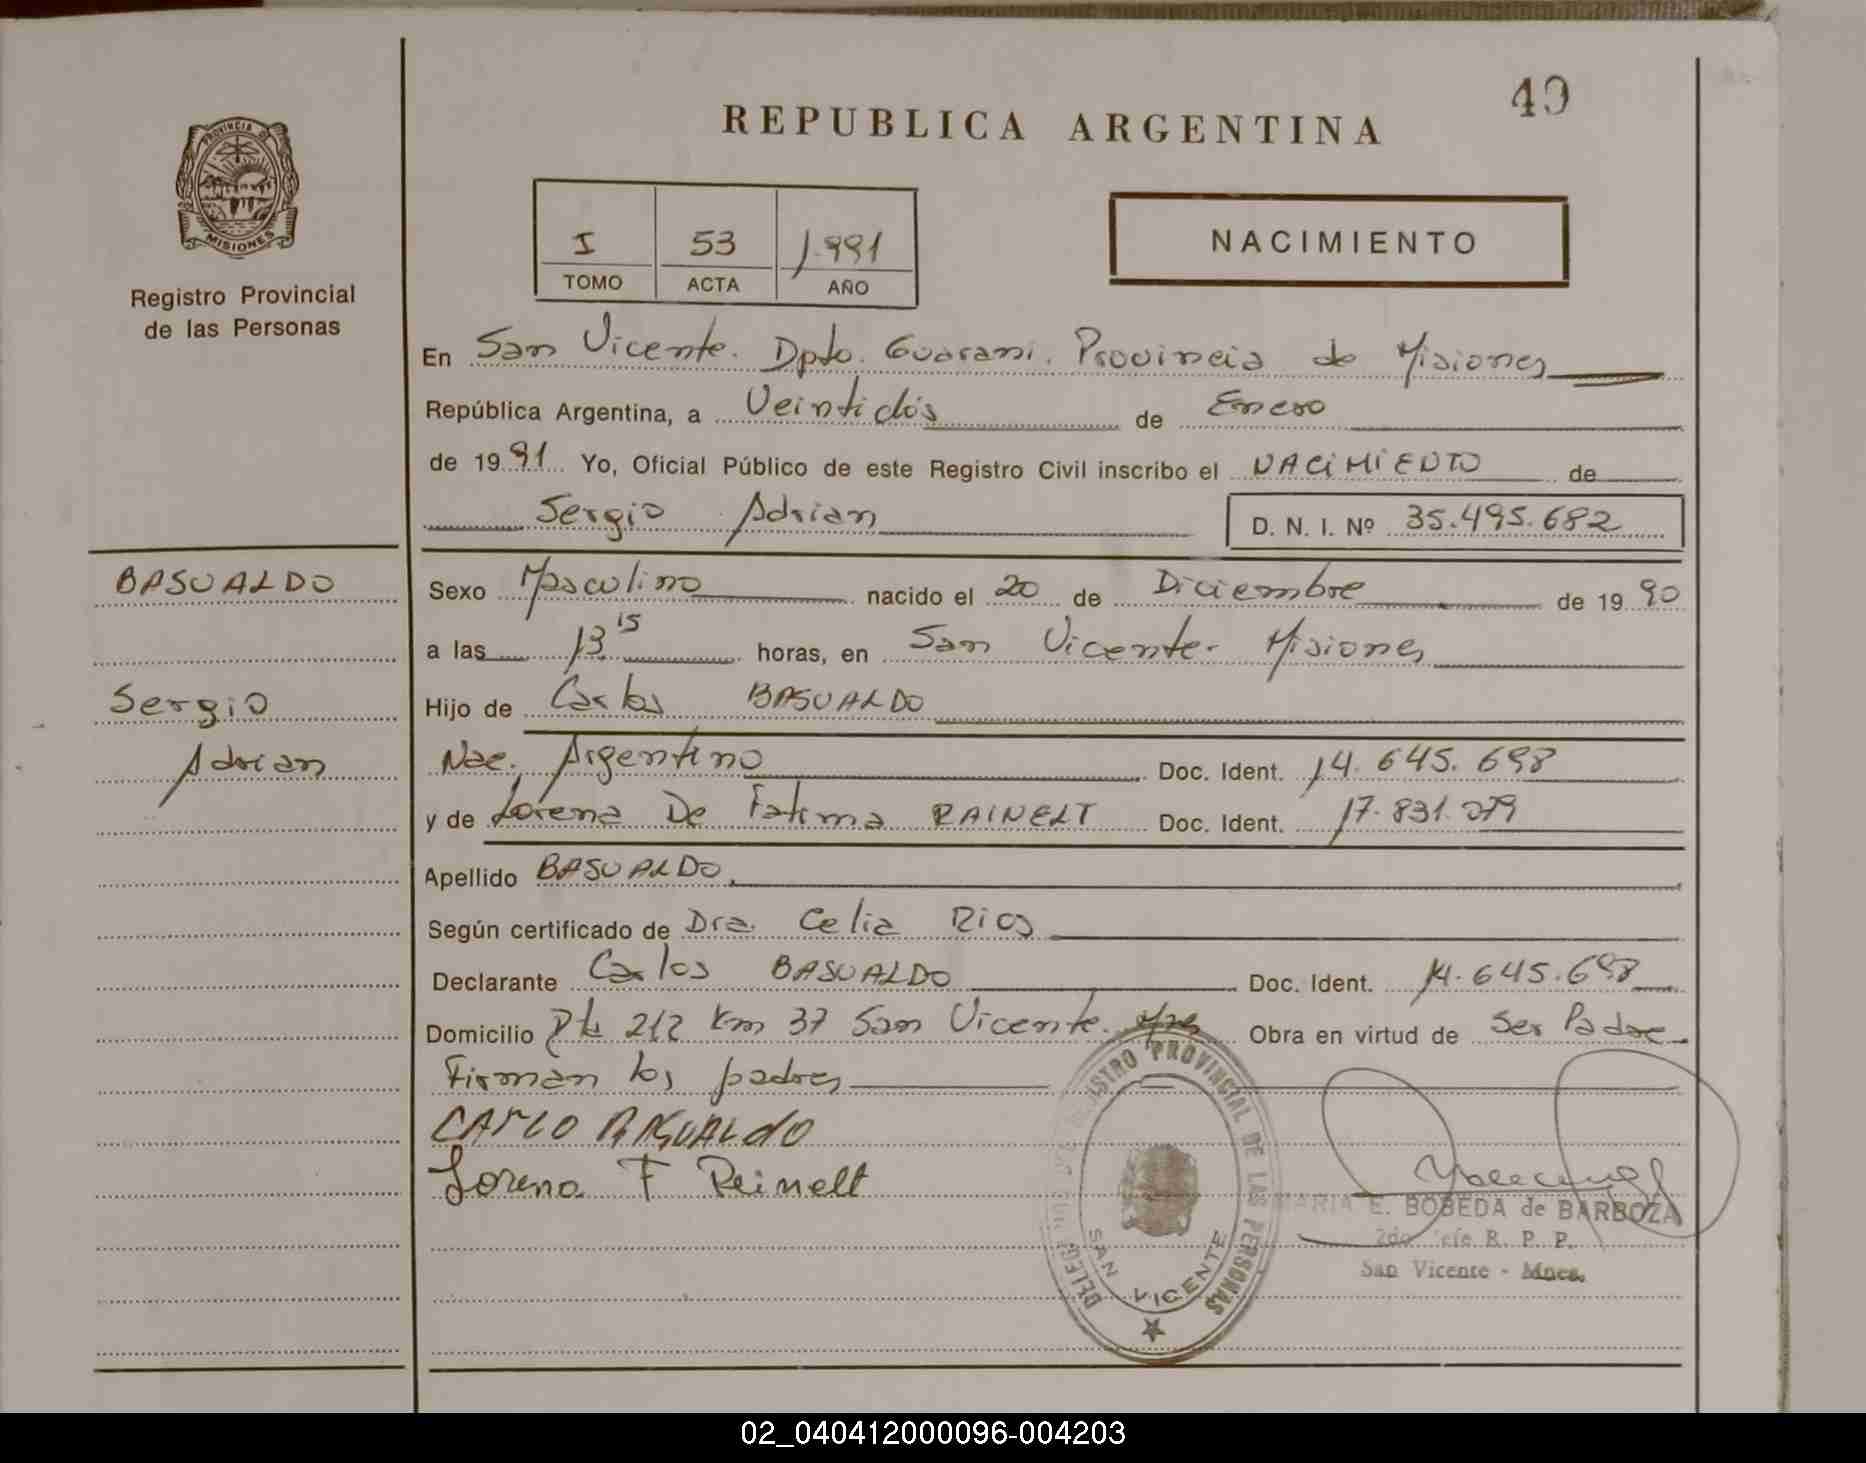 49
REPUBLICA ARGENTINA
PROVINCIA DE
MISIONES
Registro Provincial
de las Personas
I 53 1.991
TOMO ACTA AÑO
NACIMIENTO
En San Vicente. Dpto. Guarani. Provincia de Misiones
República Argentina, a Veintidós de Enero
de 1991 Yo, Oficial Público de este Registro Civil inscribo el NACIMIENTO de
Sergio Adrian D. N. I. Nº 35.495.682
BASUALDO
Sergio
Adrian
Sexo Masculino nacido el 20 de Diciembre de 1990
a las 13.15 horas, en San Vicente. Misiones
Hijo de Carlos BASUALDO
Nac. Argentino Doc. Ident. 14.645.698
y de Lorena De Fatima RAINELT Doc. Ident. 17.831.279
Apellido BASUALDO
Según certificado de Dra. Celia Rios
Declarante Carlos BASUALDO Doc. Ident. 14.645.698
Domicilio 212 Km 37 San Vicente. Obra en virtud de Ser Padre
Firman los padres
CARLO BASUALDO
Lorena F Reinelt
REGISTRO PROVINCIAL DE LAS PERSONAS
SAN VICENTE
MARIA E. BOBEDA de BARBOZA
2do R. P. P.
San Vicente - Mnes.
02_040412000096-004203